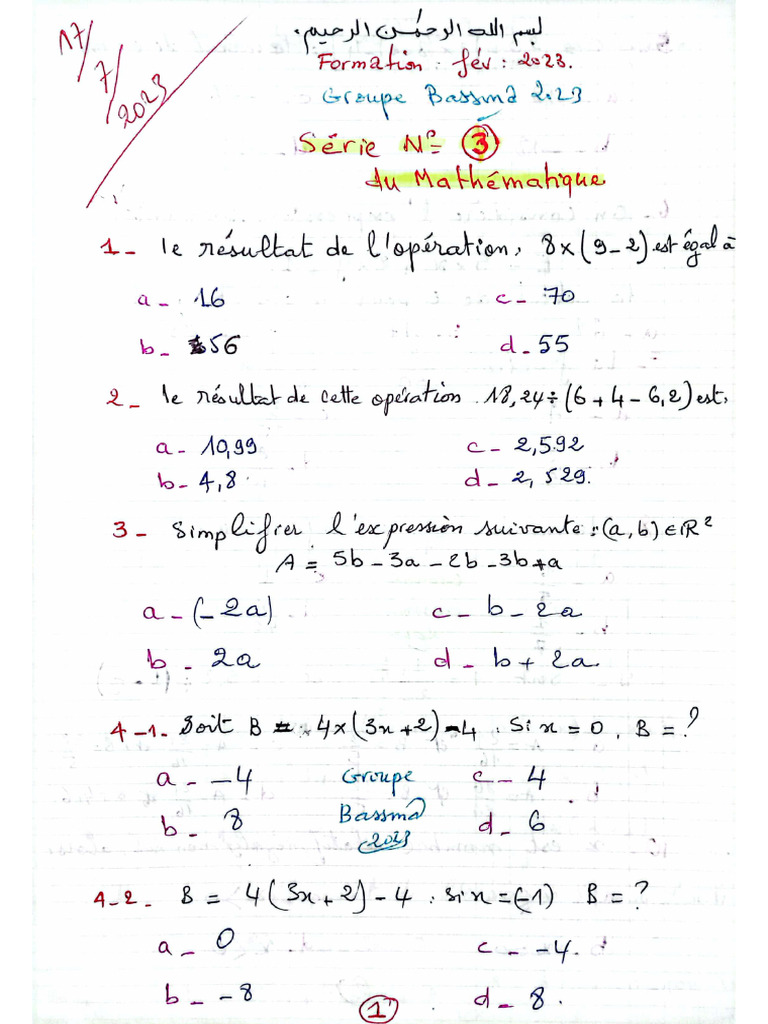 17/7/2023
بسم الله الرحمٰن الرحيم.
Formation : fév : 2023.
Groupe Bassma 2023
Série N° 3
du Mathématique
1- le résultat de l'opération, 8x(9-2) est égal à
a- 16 c- 70
b- 56 d- 55
2- le résultat de cette opération 18,24÷(6+4-6,2) est,
a- 10,99 c- 2,592
b- 4,8 d- 2,529.
3- Simplifier l'expression suivante : (a,b)∈IR²
A = 5b-3a-2b-3b+a
a- (-2a) c- b-2a
b- 2a d- b+2a.
4-1- Soit B = 4x(3x+2)-4. Si x=0, B=?
a- -4 c- 4
b- 8 d- 6
Groupe
Bassma
2023
4-2- B = 4(3x+2)-4. si x=(-1) B=?
a- 0 c- -4.
b- -8 d- 8.
1